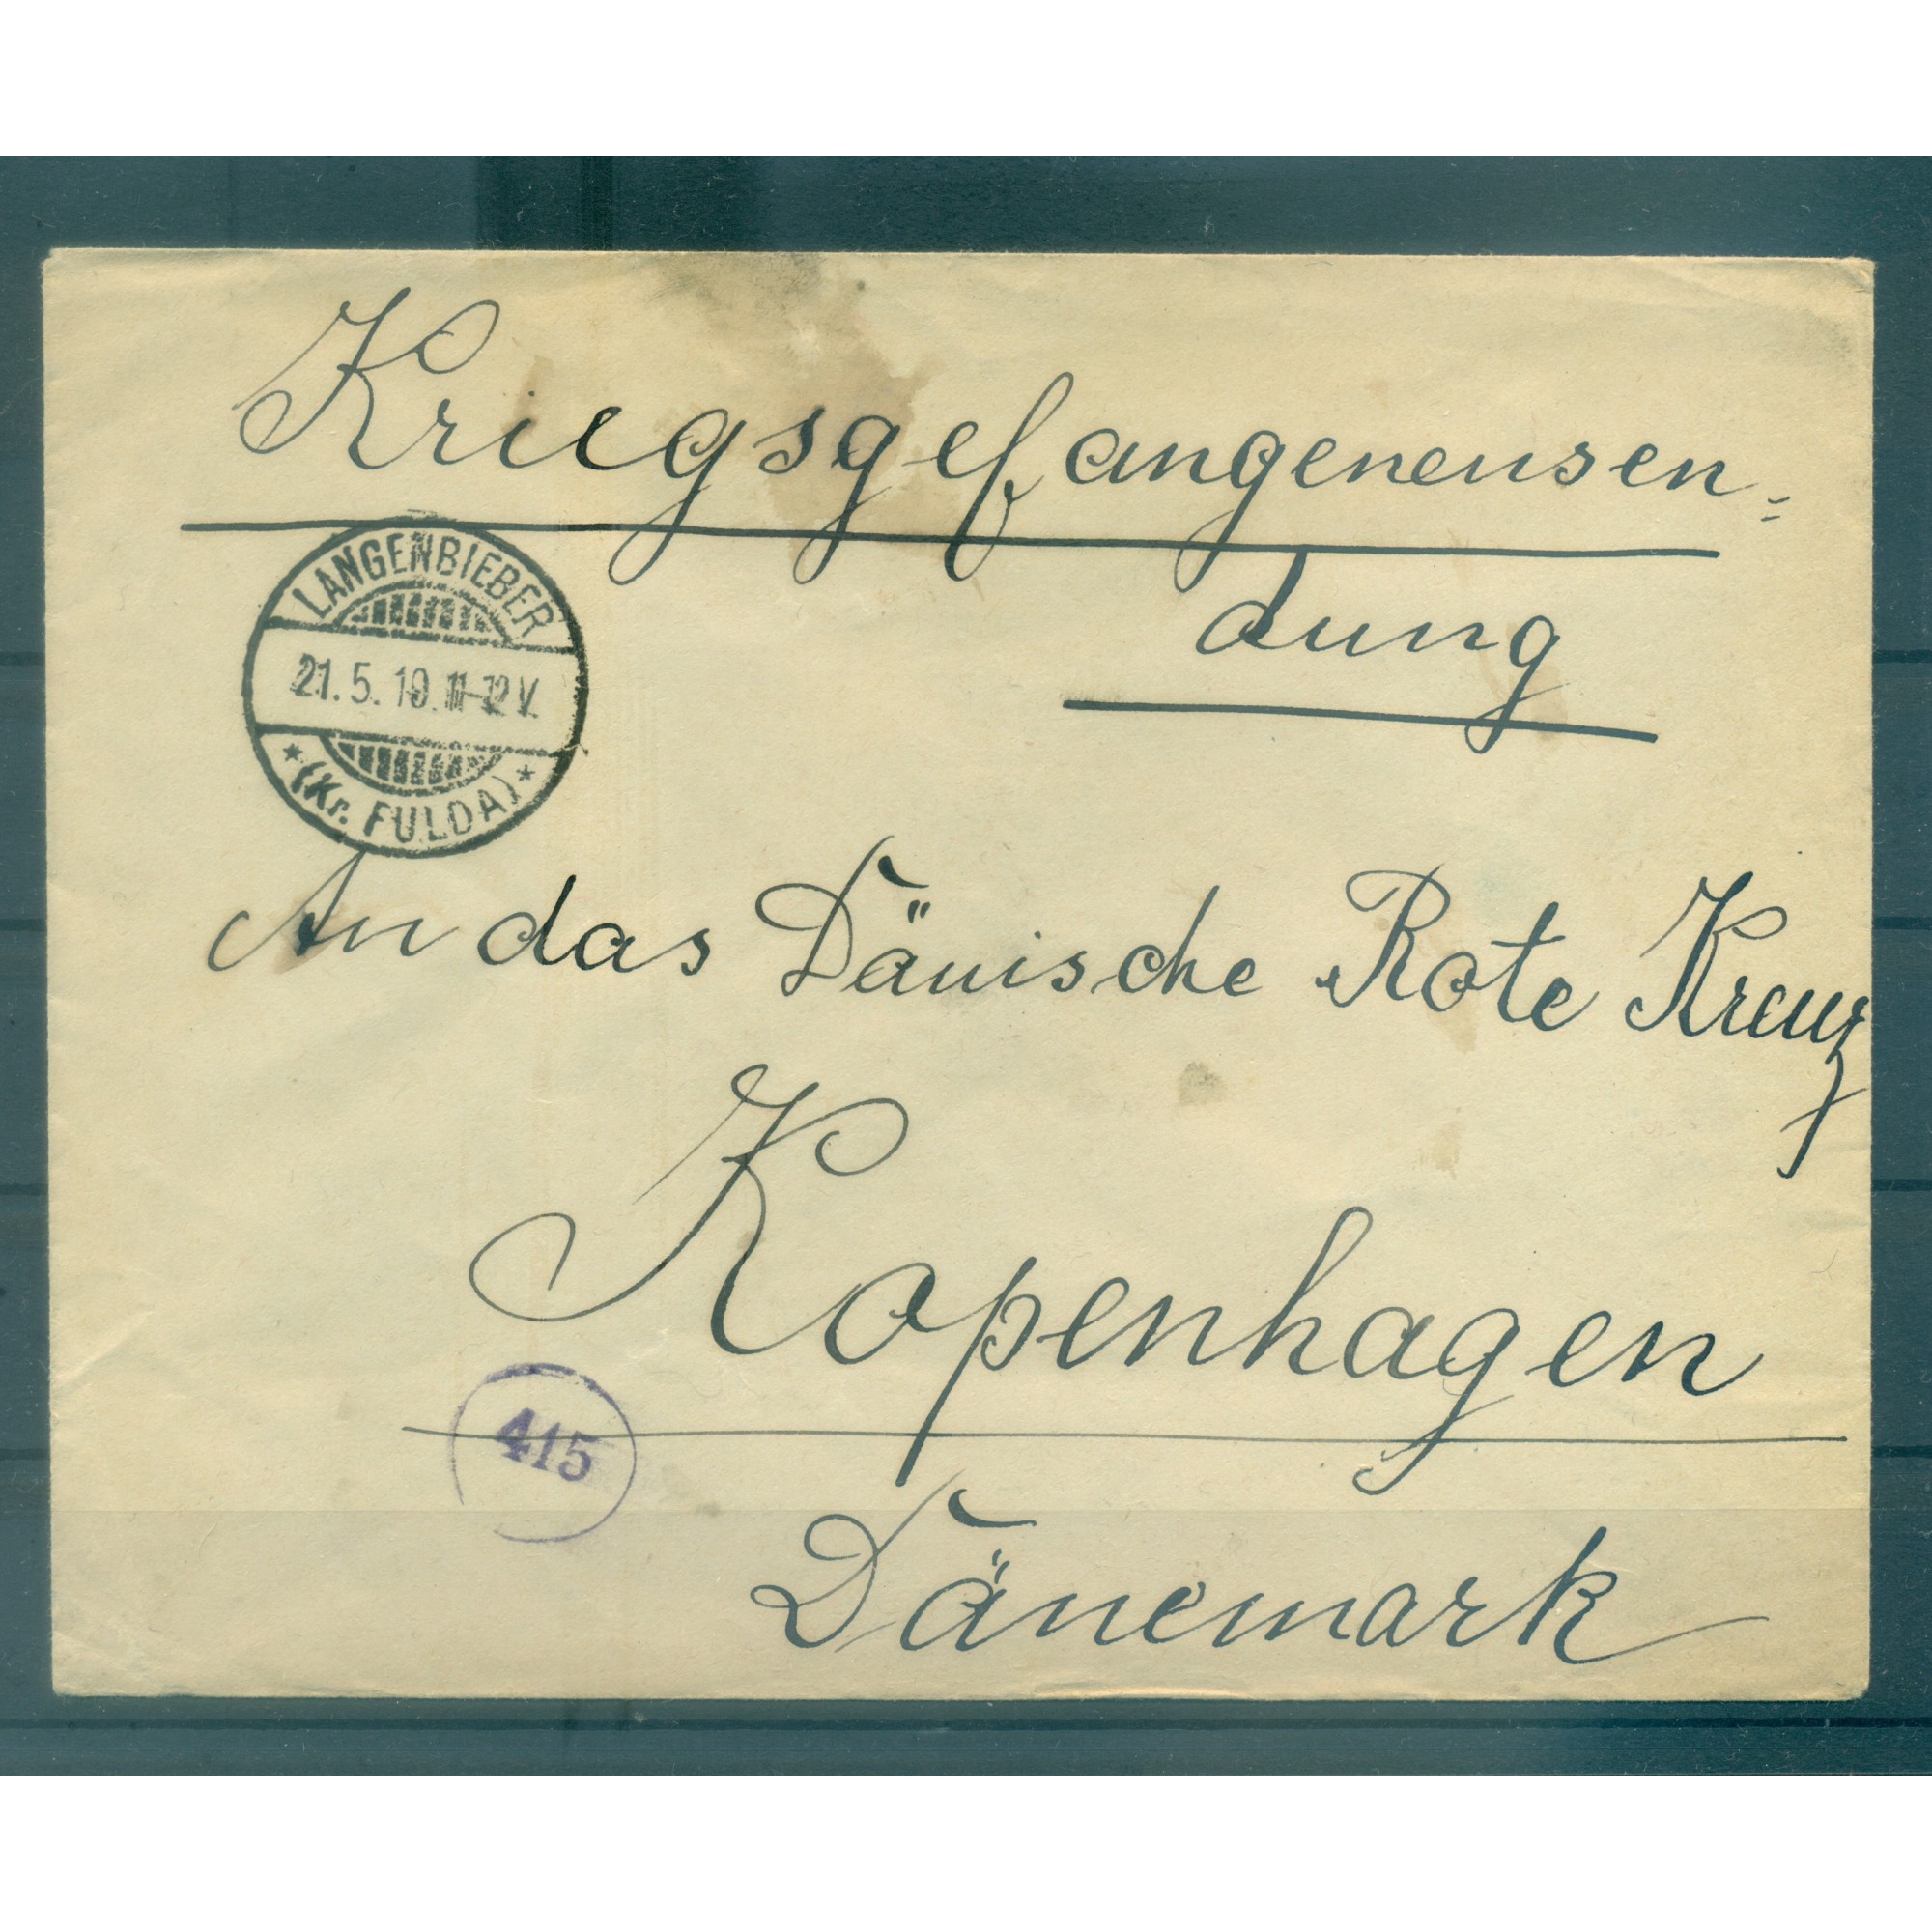 Kriegsgefangenensen-
dung
LANGENBIEBER
21.5.19.11-12V.
* (Kr. FULDA) *
An das Dänische Rote Kreuz
Kopenhagen
415
Dänemark